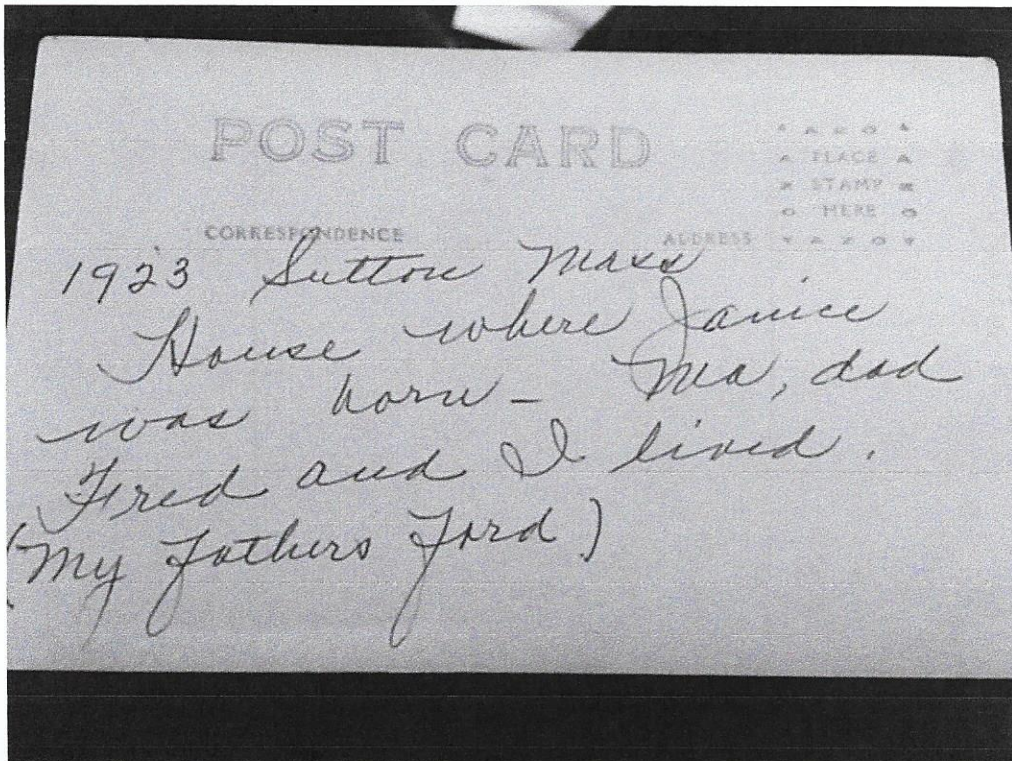 POST CARD
PLACE
STAMP
HERE
CORRESPONDENCE
ADDRESS
1923 Sutton Mass
House where Janice
was born - Ma, dad
Fred and I lived.
(My Fathers Ford)